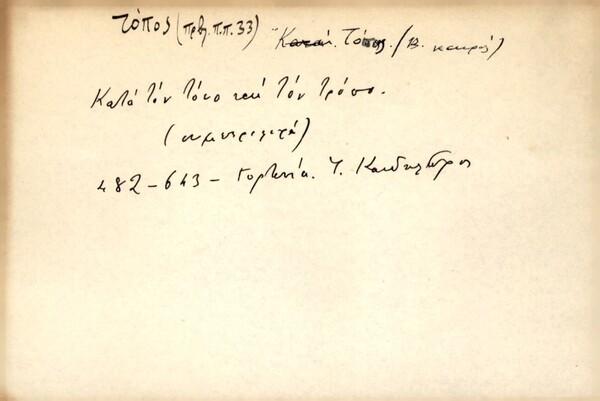 τόπος (πρβ. π.π. 33) Κατά. Τόπος. (Β. καιρός)
Κατά τον τόπο και τον τρόπο.
(συμπεριφορά)
482 – 643 – Γορτυνία. Ι. Κανδηλώρος